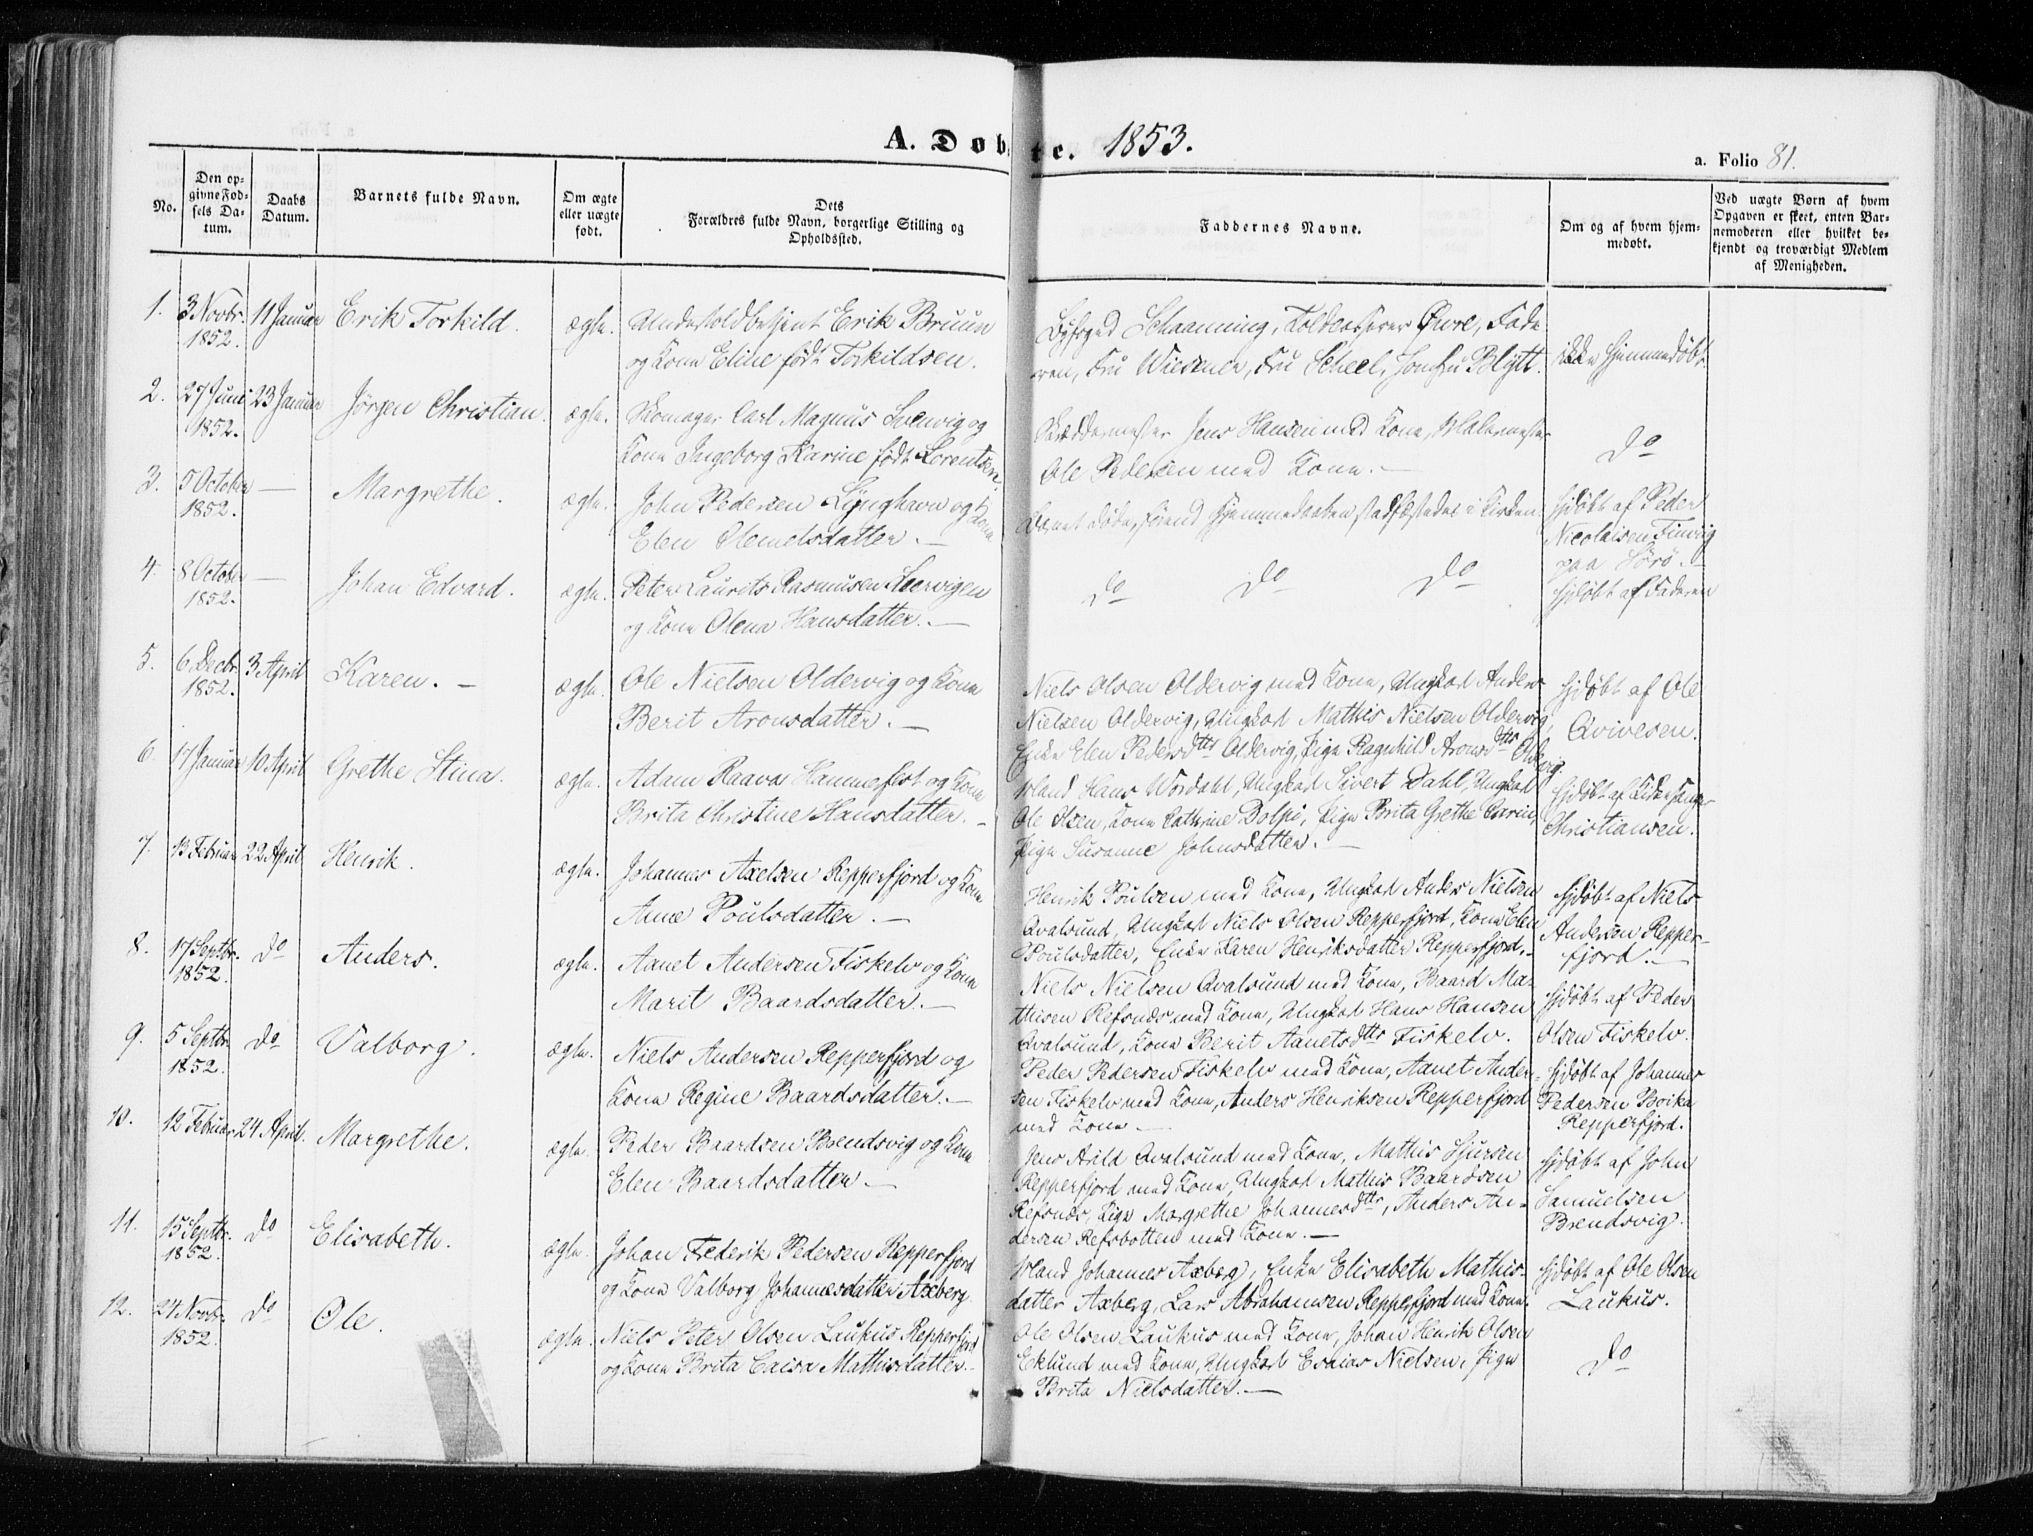 A. Døbte. 1853.
a. Folio 81.
No.
Den op-
givne Fød-
sels Da-
tum.
Daabs
Datum.
Barnets fulde Navn.
Om ægte
eller uægte
født.
Dets
Forældres fulde Navn, borgerlige Stilling og
Opholdssted.
Faddernes Navne.
Om og af hvem hjem-
medøbt.
Ved uægte Børn af hvem
Opgaven er skeet, enten Bar-
nemoderen eller hvilket be-
kjendt og troværdigt Medlem
af Menigheden.
1. 3 Novbr. 1852. 11 Januar Erik Torkild. ægte.
Undertoldbetjent Erik Bruun
og Kone Eline født Torkildsen.
Byfoged Schaanning, Toldcasserer Øwre, Fade-
ren, Fru Wiesener, Fru Scheel, Jomfru Blytt.
ikke hjemmedøbt.
2. 27 Juni 1852. 23 Januar Jörgen Christian. ægte.
Skomager Carl Magnus
Kone Ingeborg Karine født Lorentsen.
Skræddermester Jens Hansen med Kone, Malermester
Ole Pedersen med Kone. —
Do
3. 5 October 1852. — Margrethe. ægte.
John Pedersen Lynghavn og Kone
Elen Clemetsdatter. —
Barnet døde, førend Hjemmedaaben stadfæstedes i Kirken.
hjdøbt af Peder
Nicolaisen Finvig
paa Sörö. —
4. 8 October 1852. — Johan Edvard. ægte.
Peter Laurits Rasmusen
og Kone Olena Hansdatter. —
Do Do Do
hjdøbt af Faderen
5. 6 Decbr. 1852. 3 April Karen. — ægte.
Ole Nielsen Oldervig og Kone
Berit Aronsdatter. —
Niels Olsen Oldervig med Kone, Ungkarl Anders
Nielsen Oldervig, Ungkarl Mathis Nielsen Oldervig,
Enke Elen Pedersdttr Oldervig, Pige Ragnhild Aronsdttr Oldervig
hjdøbt af Ole
Qvivesen.
6. 17 Januar 10 April Grethe Stina. ægte.
Adam Raavas Hammerfest og Kone
Brita Christine Hansdatter. —
Mand Hans Wordahl, Ungkarl Sivert Dahl, Ungkarl
Ole Olsen, Kone Cathrine Dolpi, Pige Brita Grethe
Pige Susanne Johnsdatter. —
hjdøbt af Kirkesanger
Christiansen.
7. 13 Februar 22 April Henrik. ægte.
Johannes Axelsen Repperfjord og Kone
Anne Poulsdatter. —
Henrik Poulsen med Kone, Ungkarl Anders Nielsen
Qvalsund, Ungkarl Niels Olsen Repperfjord, Kone Elen
Poulsdatter, Enke Karen Henriksdatter Repperfjord. —
hjdøbt af Niels
Andersen Repper-
fjord. —
8. 17 Septbr. 1852. Do Anders. ægte.
Aanet Andersen Fiskelv og Kone
Marit Baardsdatter. —
Niels Nielsen Qvalsund med Kone, Baard Ma-
thisen Refsnæs med Kone, Ungkarl Hans Hansen
Qvalsund, Kone Berit Aanetsdttr Fiskelv.
hjdøbt af Peder
Olsen Fiskelv.
9. 5 Septbr. 1852. Do Valborg. ægte.
Niels Andersen Repperfjord og
Kone Regine Baardsdatter. —
Peder Pedersen Fiskelv med Kone, Aanet Ander-
sen Fiskelv med Kone, Anders Henriksen Repperfjord
med Kone. —
hjdøbt af Johannes
Pedersen Boika
Repperfjord.
10. 12 Februar 24 April. Margrethe. ægte.
Peder Baardsen Brendsvig og Kone
Elen Baardsdatter. —
Jens Arild Qvalsund med Kone, Mathis Sjursen
Repperfjord med Kone, Ungkarl Mathis Baardsen
Refsnæs, Pige Margrethe Johannesdttr, Anders An-
dersen Refsbotten med Kone. —
hjdøbt af John
Samuelsen
Brendsvig.
11. 15 Septbr. 1852. Do Elisabeth. ægte.
Johan Federik Pedersen Repperfjord
og Kone Valborg Johannesdatter Axberg.
Mand Johannes Axberg, Enke Elisabeth Mathis-
datter Axberg, Lars Abrahamsen Repperfjord med Kone.
hjdøbt af Ole Olsen
Laukus.
12. 24 Novbr. 1852. Do Ole. ægte.
Niels Peter Olsen Laukus Repperfjord
og Kone Brita Caisa Mathisdatter. —
Ole Olsen Laukus med Kone, Johan Henrik Olsen
Eklund med Kone, Ungkarl Esaias Nielsen, Pige
Brita Nielsdatter. —
Do